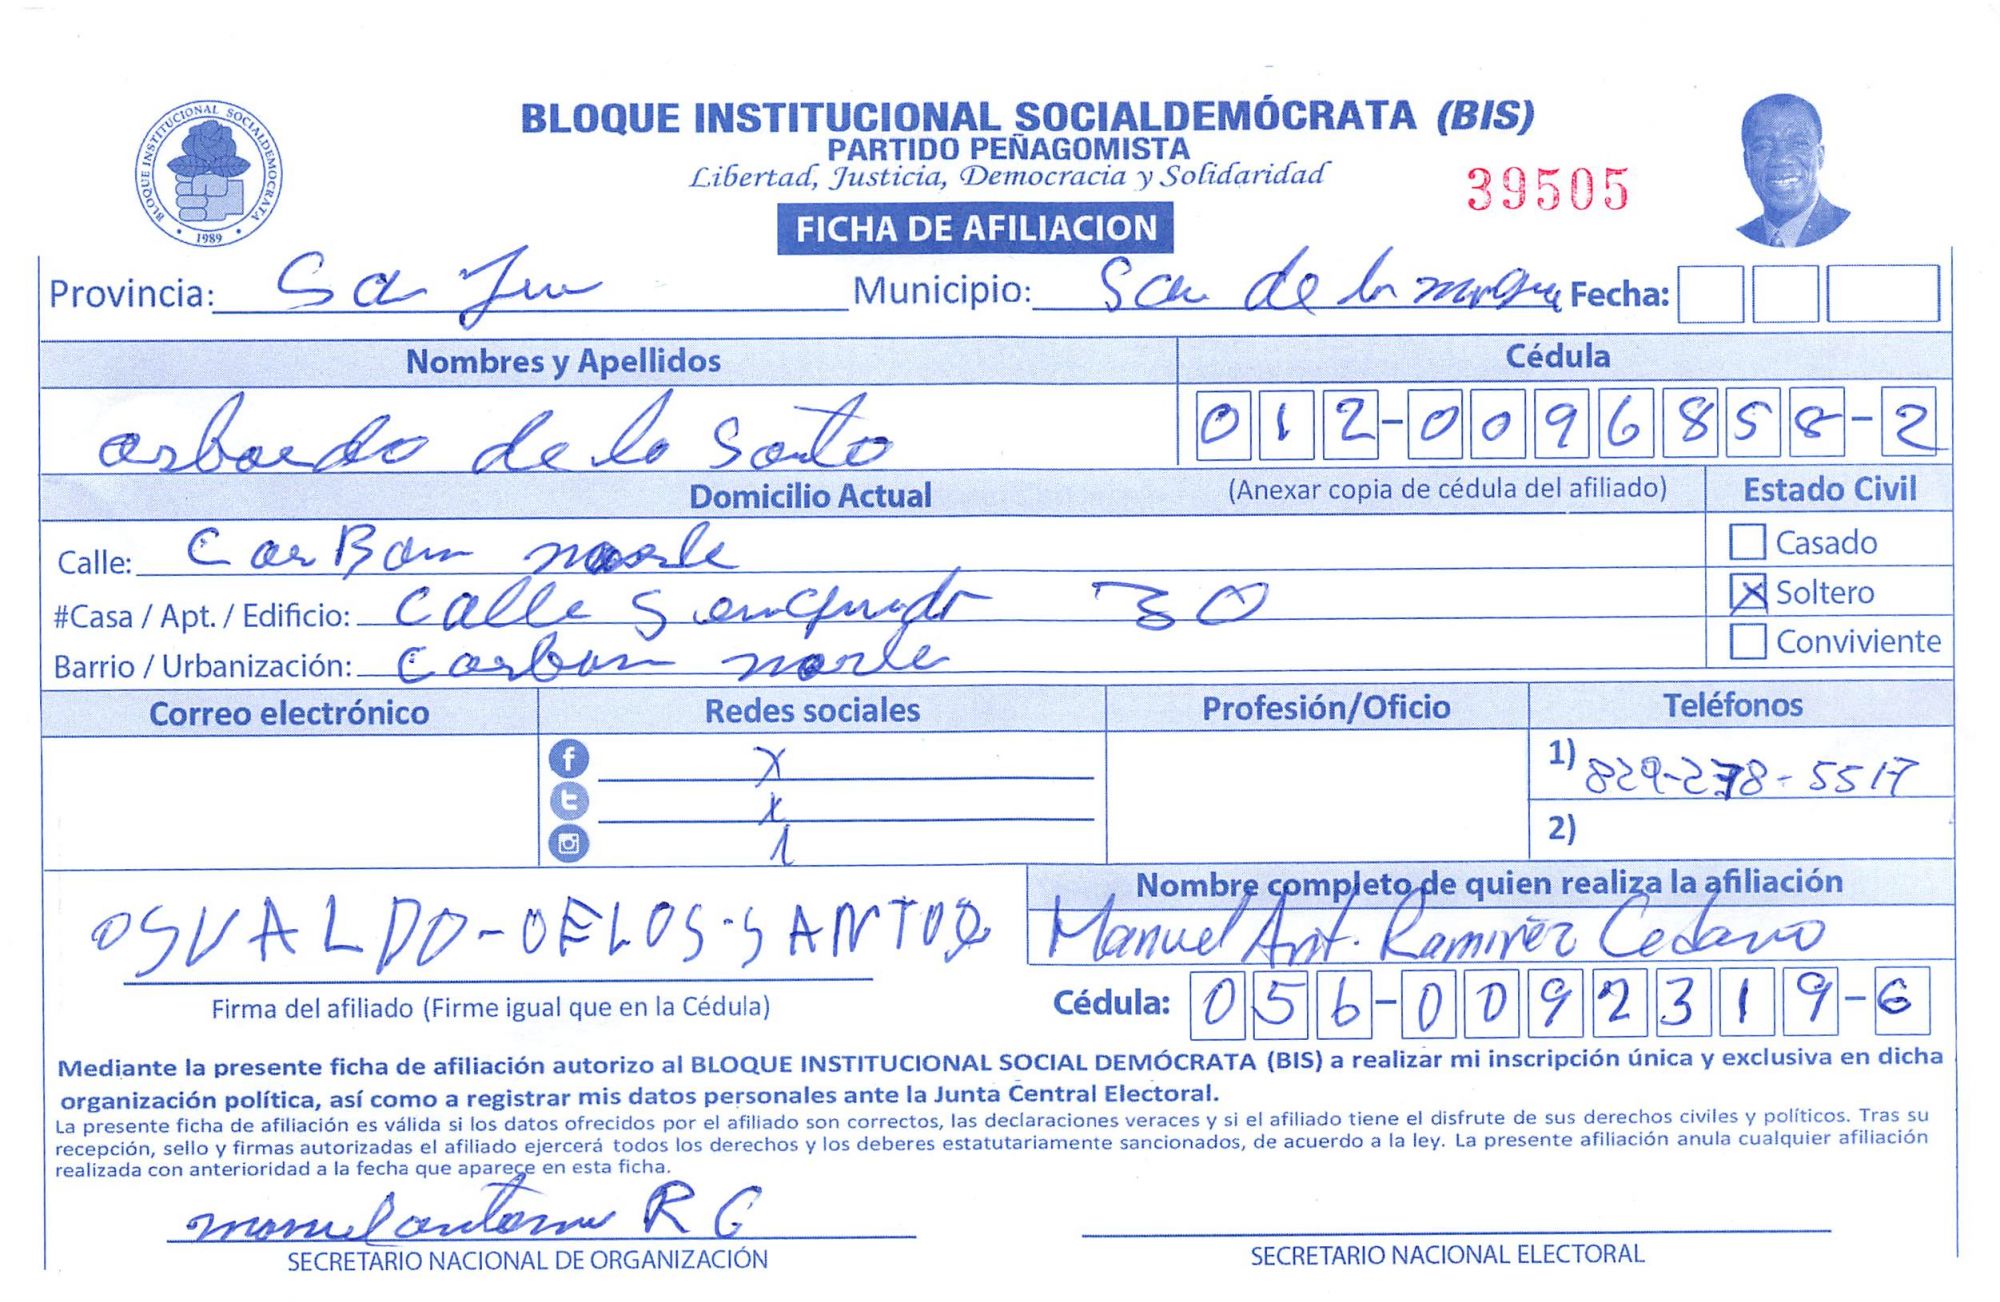 BLOQUE INSTITUCIONAL SOCIALDEMÓCRATA (BIS)
PARTIDO PEÑAGOMISTA
Libertad, Justicia, Democracia y Solidaridad
39505
BLOQUE INSTITUCIONAL SOCIALDEMOCRATA
1989
FICHA DE AFILIACION
Provincia: Sa Juu Municipio: San de la Fecha:
Nombres y Apellidos Cédula
de lo Santo 012-0096858-2
Domicilio Actual (Anexar copia de cédula del afiliado) Estado Civil
Calle: CarBon norle Casado
#Casa / Apt. / Edificio: Calle 30 X Soltero
Barrio / Urbanización: Carbon norle Conviviente
Correo electrónico Redes sociales Profesión/Oficio Teléfonos
X 1) 829-278-5517
x
2)
Nombre completo de quien realiza la afiliación
OSVALDO-DELOS-SANTOS Manuel Ant. Ramirez Cedano
Firma del afiliado (Firme igual que en la Cédula) Cédula: 056-0092319-6
Mediante la presente ficha de afiliación autorizo al BLOQUE INSTITUCIONAL SOCIAL DEMÓCRATA (BIS) a realizar mi inscripción única y exclusiva en dicha
organización política, así como a registrar mis datos personales ante la Junta Central Electoral.
La presente ficha de afiliación es válida si los datos ofrecidos por el afiliado son correctos, las declaraciones veraces y si el afiliado tiene el disfrute de sus derechos civiles y políticos. Tras su
recepción, sello y firmas autorizadas el afiliado ejercerá todos los derechos y los deberes estatutariamente sancionados, de acuerdo a la ley. La presente afiliación anula cualquier afiliación
realizada con anterioridad a la fecha que aparece en esta ficha.
manuel antonio R C
SECRETARIO NACIONAL DE ORGANIZACIÓN SECRETARIO NACIONAL ELECTORAL